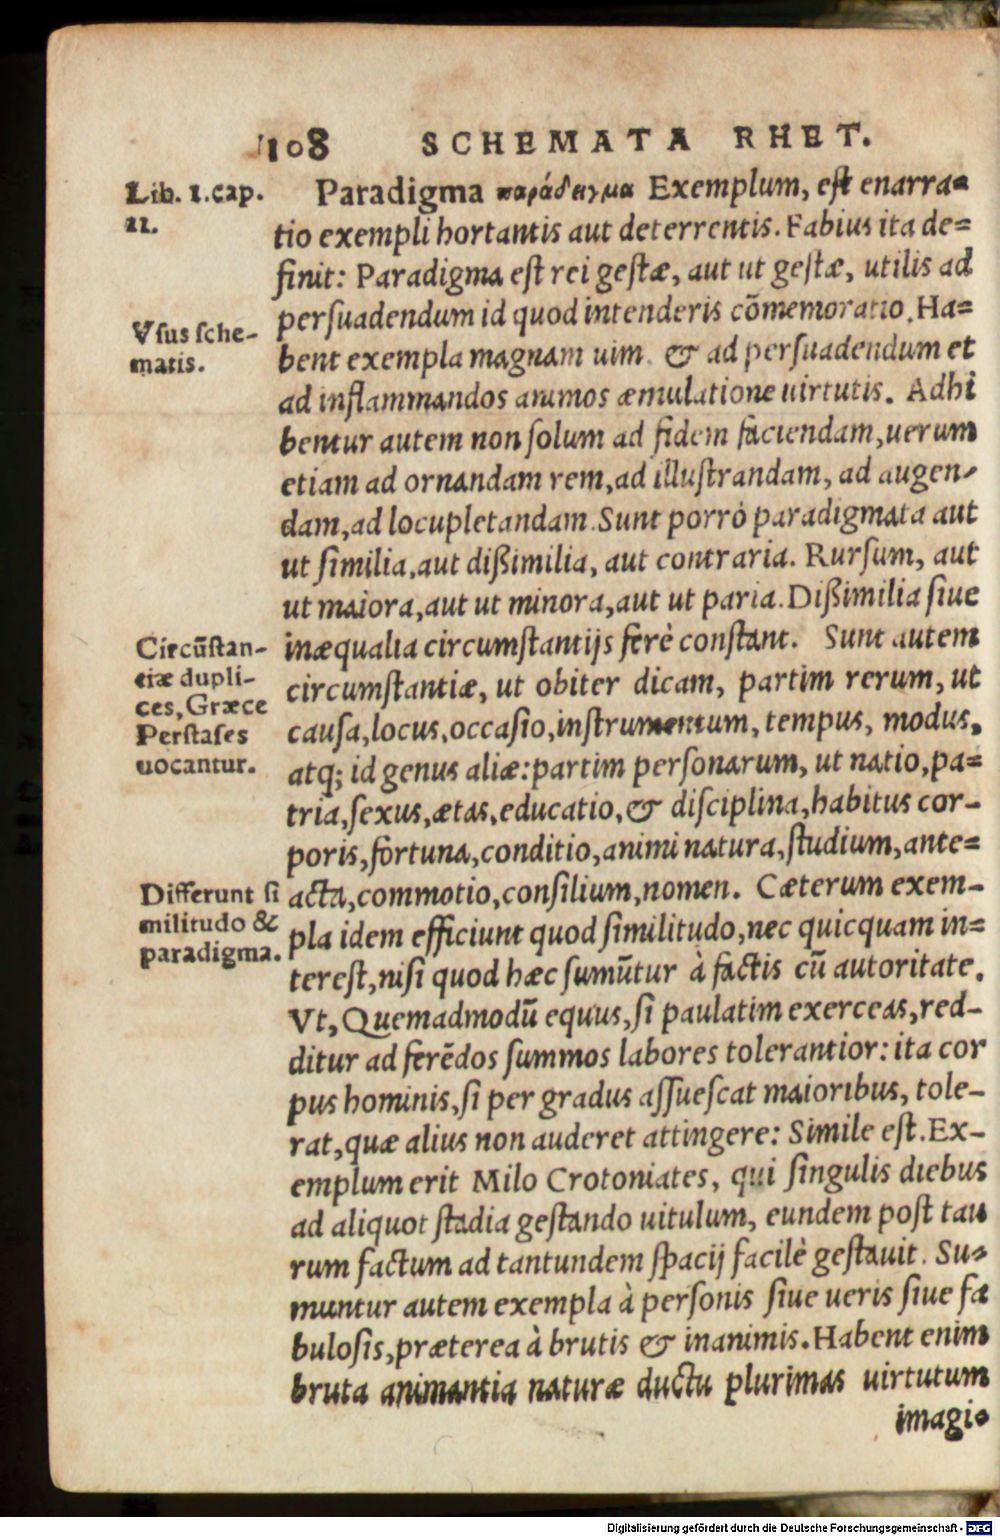 108 SCHEMATA RHET.
Lib. 1. cap.
11.
Paradigma παράδειγμα Exemplum, est enarra=
tio exempli hortantis aut deterrentis. Fabius ita de=
finit: Paradigma est rei gestæ, aut ut gestæ, utilis ad
persuadendum id quod intenderis cõmemoratio. Ha=
Vsus sche-
matis.
bent exempla magnam uim & ad persuadendum et
ad inflammandos animos æmulatione uirtutis. Adhi
bentur autem non solum ad fidem faciendam, uerum
etiam ad ornandam rem, ad illustrandam, ad augen-
dam, ad locupletandam. Sunt porrò paradigmata aut
ut similia, aut dißimilia, aut contraria. Rursum, aut
ut maiora, aut ut minora, aut ut paria. Dißimilia siue
Circũstan-
tiæ dupli-
ces, Græce
Perstases
uocantur.
inæqualia circumstantijs ferè constant. Sunt autem
circumstantiæ, ut obiter dicam, partim rerum, ut
causa, locus, occasio, instrumentum, tempus, modus,
atq; id genus aliæ: partim personarum, ut natio, pa=
tria, sexus, ætas, educatio, & disciplina, habitus cor-
poris, fortuna, conditio, animi natura, studium, ante=
Differunt si
militudo &
paradigma.
acta, commotio, consilium, nomen. Cæterum exem-
pla idem efficiunt quod similitudo, nec quicquam in=
terest, nisi quod hæc sumũtur à factis cũ autoritate.
Vt, Quemadmodũ equus, si paulatim exerceas, red-
ditur ad ferẽdos summos labores tolerantior: ita cor
pus hominis, si per gradus assuescat maioribus, tole-
rat, quæ alius non auderet attingere: Simile est. Ex-
emplum erit Milo Crotoniates, qui singulis diebus
ad aliquot stadia gestando uitulum, eundem post tau
rum factum ad tantundem spacij facilè gestauit. Su-
muntur autem exempla à personis siue ueris siue fa
bulosis, præterea à brutis & inanimis. Habent enim
bruta animantia naturæ ductu plurimas uirtutum
imagi-
Digitalisierung gefördert durch die Deutsche Forschungsgemeinschaft - DFG